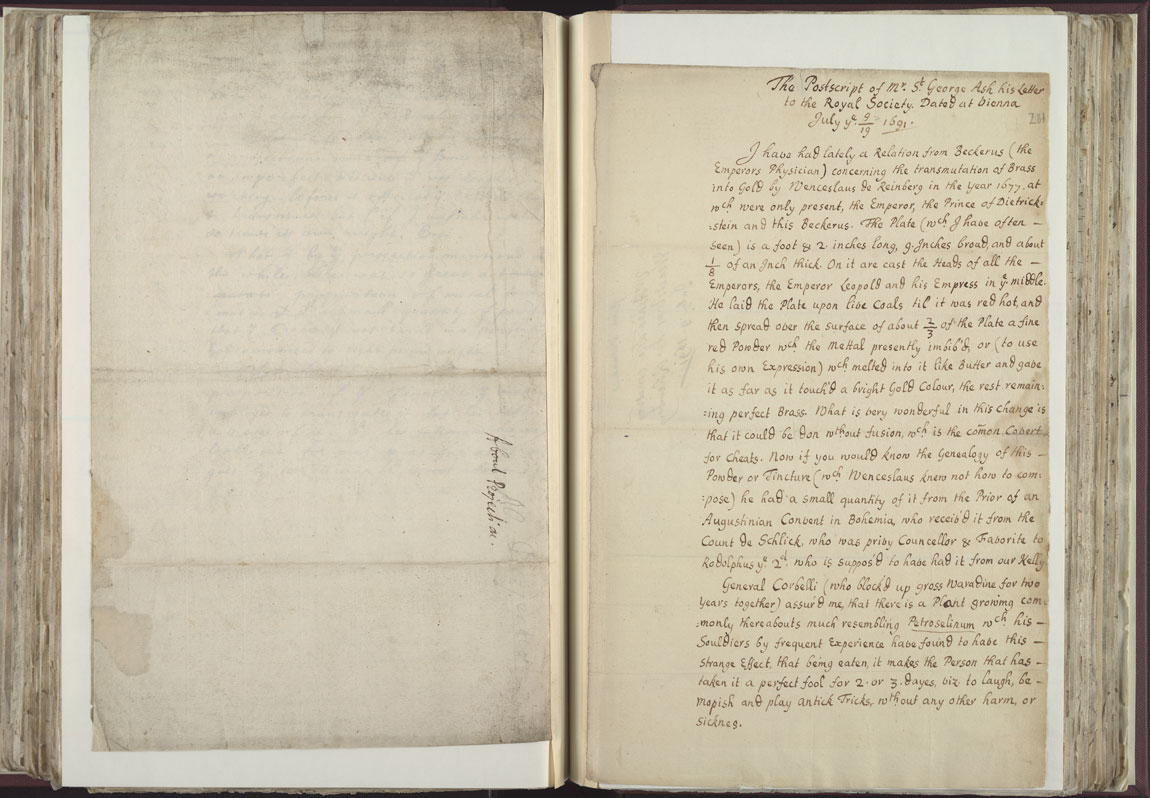 About Projection.
The Postscript of Mr. St. George Ash his Letter
to the Royal Society. Dated at Vienna
July ye. 9/19 1691.
I have had lately a Relation from Beckerus (the
Emperors Physician) concerning the transmutation of Brass
into Gold by Wenceslaus de Reinberg in the Year 1677, at
wch were only present, the Emperor, the Prince of Dietrick:
:stein and this Beckerus. The Plate (wch I have often —
seen) is a foot & 2 inches long, 9. Inches broad, and about
1/8 of an Inch thick. On it are cast the Heads of all the —
Emperors, the Emperor Leopold and his Empress in ye middle.
He laid the Plate upon live Coals til it was red hot, and
then spread over the surface of about 2/3 of the Plate a fine
red Powder wch the Mettal presently imbib'd, or (to use
his own Expression) wch melted into it like Butter and gave
it as far as it touch'd a bright Gold Colour, the rest remain:
:ing perfect Brass. What is very wonderful in this change is
that it could be don wthout fusion, wch is the com̄on Covert
for Cheats. Now if you would know the Genealogy of this —
Powder or Tincture (wch Wenceslaus knew not how to com:
:pose) he had a small quantity of it from the Prior of an
Augustinian Convent in Bohemia, who receiv'd it from the
Count de Schlick, who was privy Councellor & Favorite to
Rodolphus ye 2d. who is suppos'd to have had it from our Kelly
General Corbelli (who block'd up gross Waradine for two
Years together) assur'd me, that there is a Plant growing com:
:monly thereabouts much resembling Petroselinum wch his —
Souldiers by frequent Experience have found to have this —
strange Effect, that being eaten, it makes the Person that has —
taken it a perfect fool for 2. or 3. dayes, viz. to laugh, be —
mopish and play antick Tricks, wthout any other harm, or
sicknes.